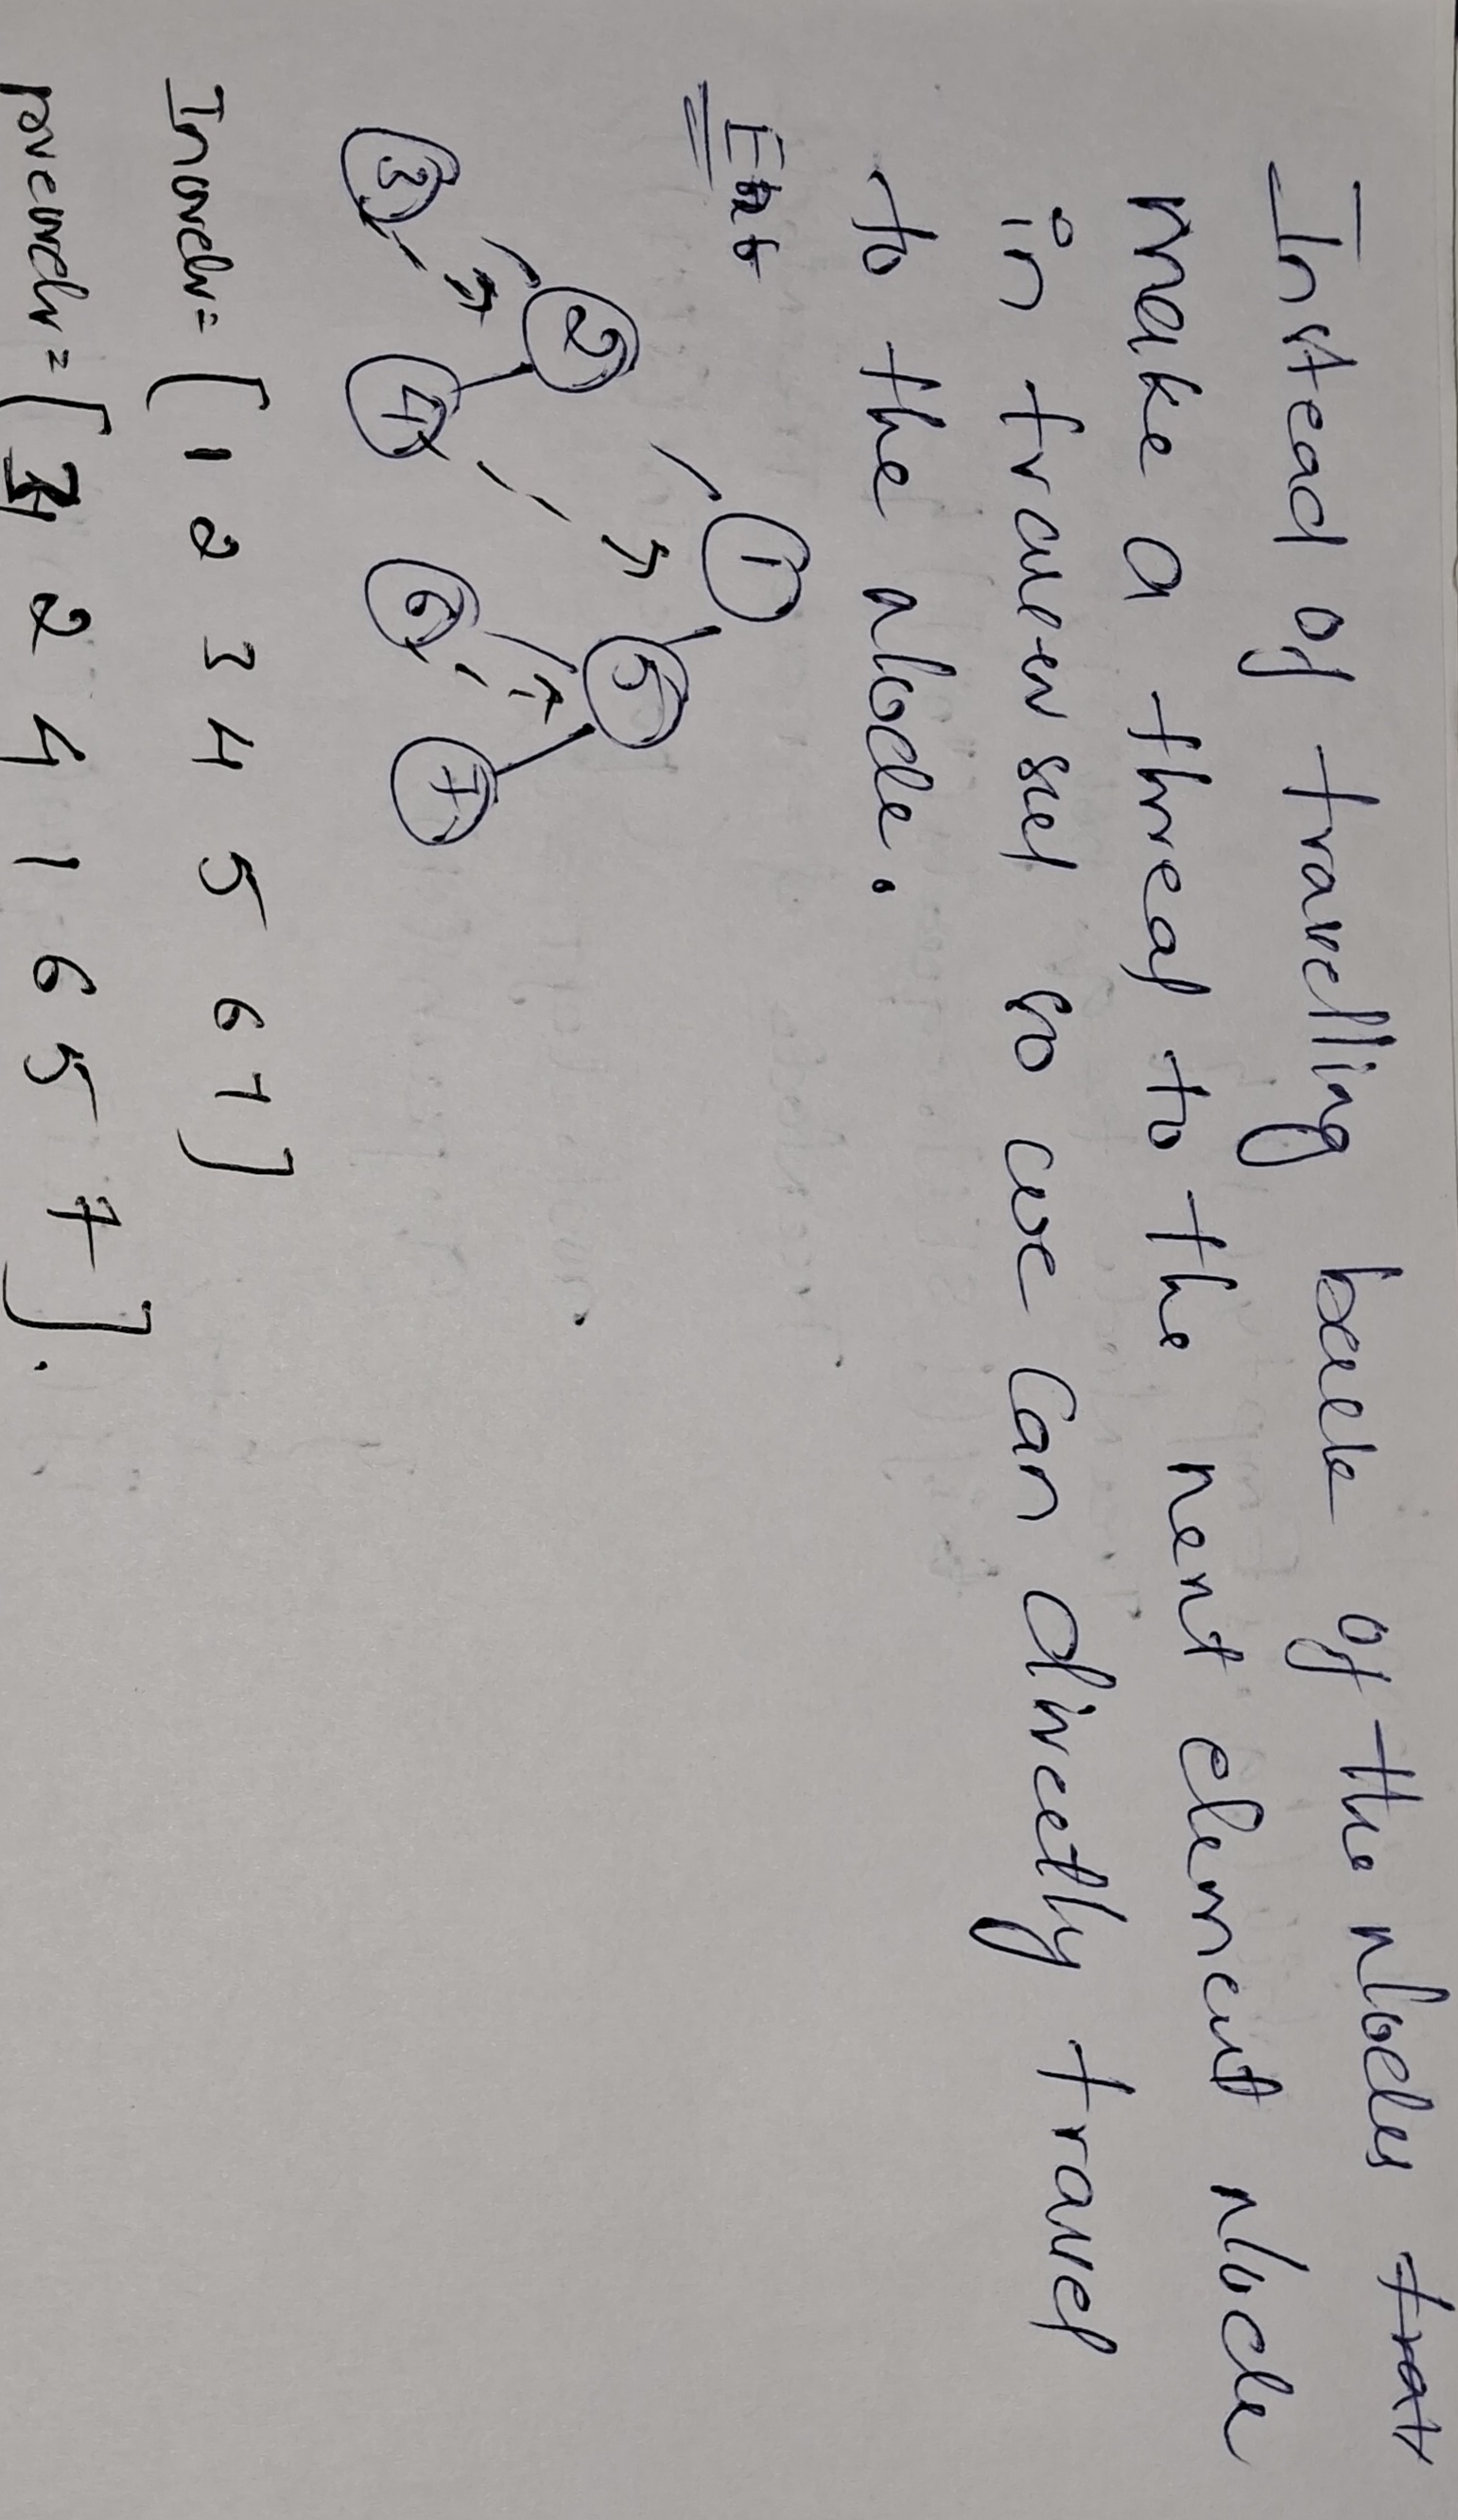 Instead of travelling back of the nodes trav
make a thread to the next element node
in traversal so we can directly travel
to the node.
Ex:-
1
2
5
3
4
6
7
Inorder = [ 1 2 3 4 5 6 7 ]
preorder = [ 3 2 4 1 6 5 7 ].